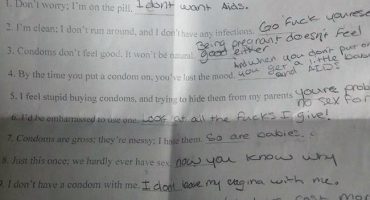 1. Don't worry; I'm on the pill. I dont want Aids.
2. I'm clean; I don't run around, and I don't have any infections. Go Fuck
Being pregnant doesn't feel
3. Condoms don't feel good. It won't be good either
And when you don't put on
4. By the time you put a condom on, you've lost the mood. you get a little
and AIDS
5. I feel stupid buying condoms, and trying to hide them from my parents youre
no sex for
6. I'd be embarrassed to use one. Look at all the fucks I give!
7. Condoms are gross; they're messy; I hate them. So are babies.
8. Just this once; we hardly ever have sex. now you know why
9. I don't have a condom with me. I dont have my vagina with me.